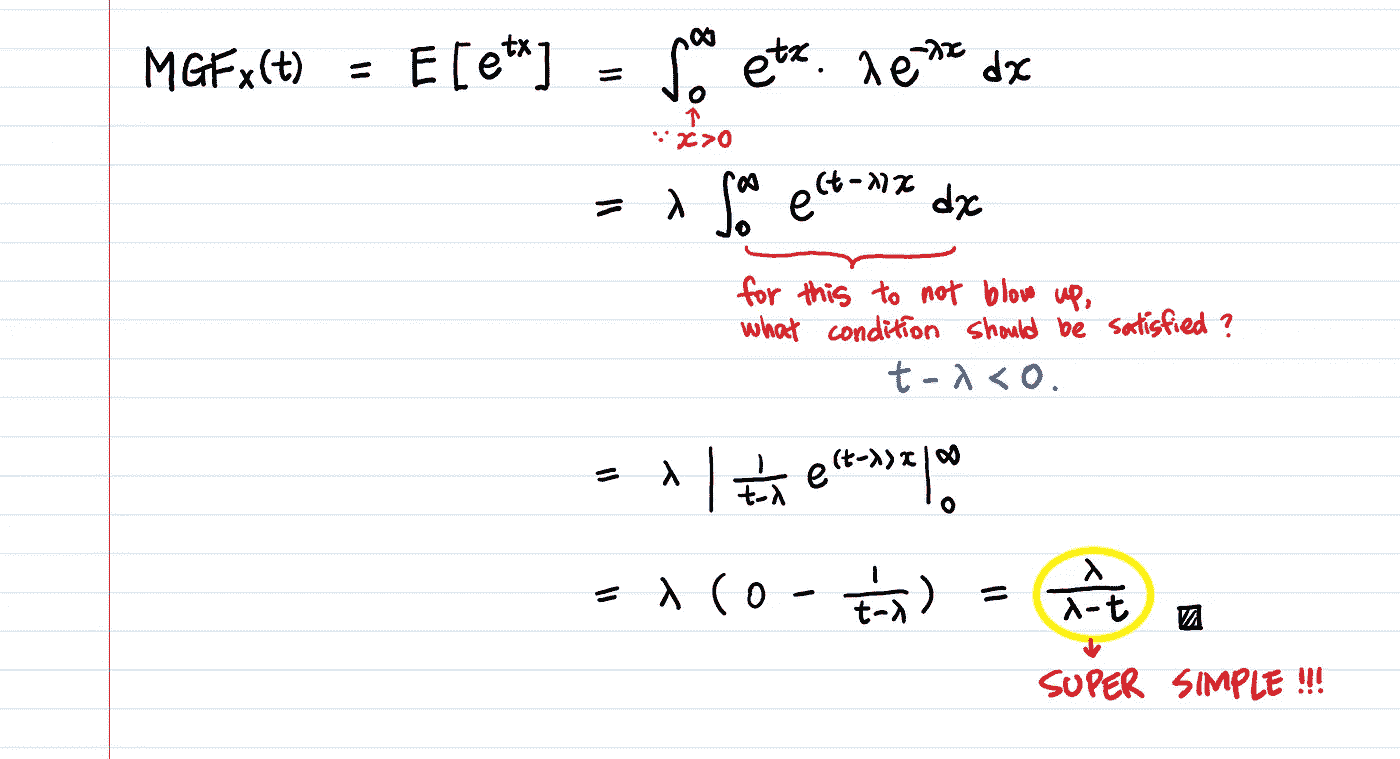 MGFx(t) = E[e^{tx}] = ∫_0^∞ e^{tx} · λe^{-λx} dx
∵ x>0
= λ ∫_0^∞ e^{(t-λ)x} dx
for this to not blow up,
what condition should be satisfied?
t - λ < 0.
= λ | 1/(t-λ) e^{(t-λ)x} |_0^∞
= λ ( 0 - 1/(t-λ) ) = λ/(λ-t)
SUPER SIMPLE!!!